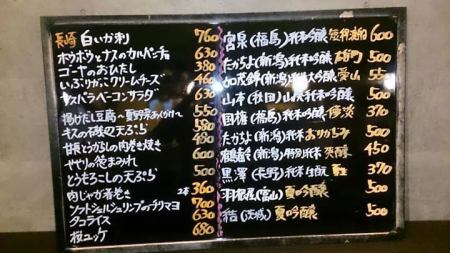 長崎 白いか刺 760
ホウボウとナスのカルパッチョ 630
ゴーヤのおひたし 380
いぶりがっこクリームチーズ 460
アスパラベーコンサラダ 630
揚げだし豆腐〜夏野菜あんかけ〜 550
キスの磯辺天ぷら 580
甘長とうがらしの肉巻き焼き 480
やがらの塩まみれ 600
とうもろこしの天ぷら 500
肉じゃが春巻き 2本 360
ソフトシェルシュリンプのチリマヨ 700
タコライス 630
桜ユッケ 680
宮泉(福島)純米吟醸 600
たかちよ(新潟)純米吟醸 雄町 500
加茂錦(新潟)純米大吟醸 愛山 550
山本(秋田)山廃純米吟醸 500
国権(福島)純米吟醸 370
たかちよ(新潟)純米 おりがらみ 500
鶴齢(新潟)特別純米 爽醇 450
黒澤(長野)純米 370
羽根屋(富山)夏吟醸 500
結(茨城)夏吟醸 500